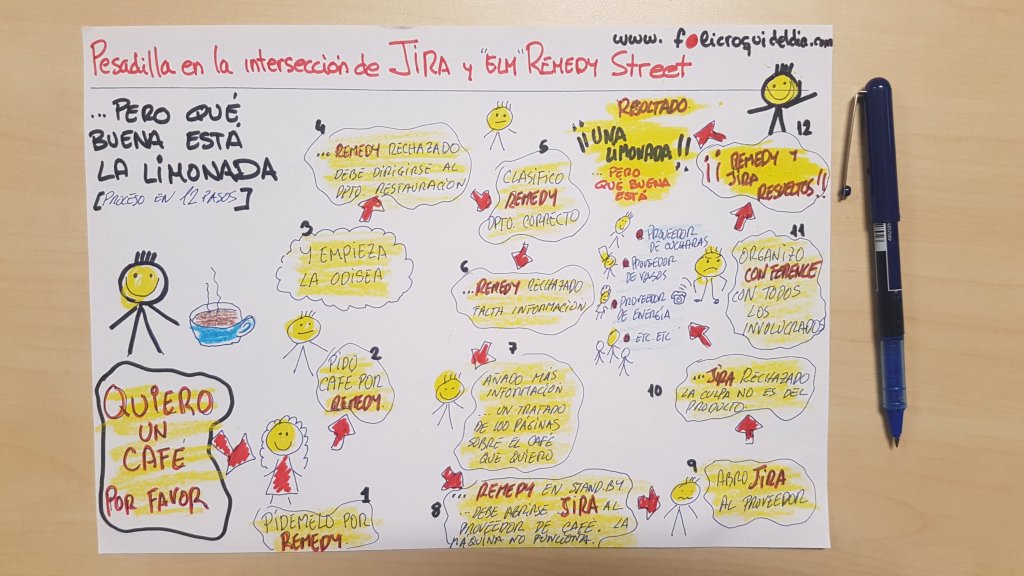 www. folicroquideldia.com
Pesadilla en la intersección de JIRA y "ELM" REMEDY Street
...PERO QUÉ
BUENA ESTÁ
LA LIMONADA
[PROCESO EN 12 PASOS]
QUIERO
UN
CAFÉ
POR FAVOR
1
PIDEMELO POR
REMEDY
2
PIDO
CAFÉ POR
REMEDY
3
Y EMPIEZA
LA ODISEA
4
... REMEDY RECHAZADO
DEBE DIRIGIRSE AL
DPTO. RESTAURACIÓN
5
CLASIFICO
REMEDY
DPTO. CORRECTO
6
... REMEDY RECHAZADO
FALTA INFORMACIÓN
7
AÑADO MÁS
INFORMACIÓN
... UN TRATADO
DE 100 PÁGINAS
SOBRE EL CAFÉ
QUE QUIERO
8
... REMEDY EN STAND.BY
... DEBE ABRIRSE JIRA AL
PROVEEDOR DE CAFÉ. LA
MÁQUINA NO FUNCIONA.
9
ABRO JIRA
AL PROVEEDOR
10
... JIRA RECHAZADO
LA CULPA NO ES DEL
PRODUCTO.
11
ORGANIZO
CONFERENCE
CON TODOS
LOS
INVOLUCRADOS
PROVEEDOR
DE CUCHARAS
PROVEEDOR
DE VASOS
PROVEEDOR
DE ENERGÍA
ETC. ETC
12
¡¡ REMEDY Y
JIRA
RESUELTOS!!
RESULTADO
¡¡UNA
LIMONADA!!
... PERO
QUÉ BUENA
ESTÁ